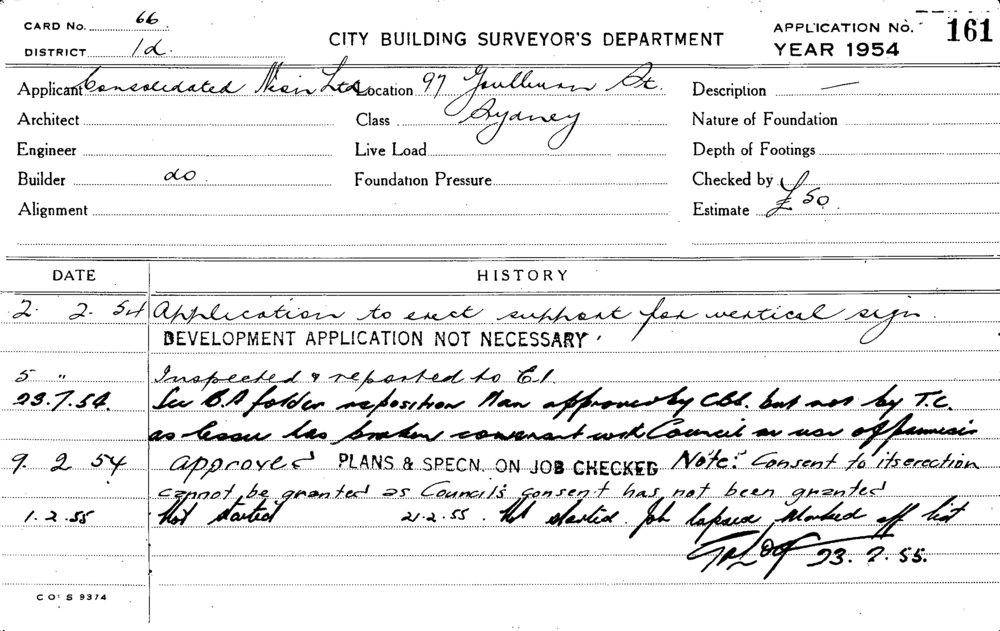 CARD No. 66
DISTRICT 1d.
CITY BUILDING SURVEYOR'S DEPARTMENT
APPLICATION No. 161
YEAR 1954
Applicant Consolidated Neon Ltd. Location 97 Goulburn St. Description —
Architect Class Sydney Nature of Foundation
Engineer Live Load Depth of Footings
Builder do. Foundation Pressure Checked by
Alignment Estimate £50
DATE HISTORY
2. 2. 54 Application to erect support for vertical sign.
DEVELOPMENT APPLICATION NOT NECESSARY
5 " Inspected & reported to C.I.
23.7.54. See B.A folder re position Plan approved by CBS. but not by T.C.
as lessee has broken covenant with Council on use of premises
9. 2 54 approved PLANS & SPECN. ON JOB CHECKED Note: Consent to its erection
cannot be granted as Council's consent has not been granted
1.2.55 Not started 21.2.55. Not started. Job lapsed Marked off list
23.2.55.
CO: S 9374